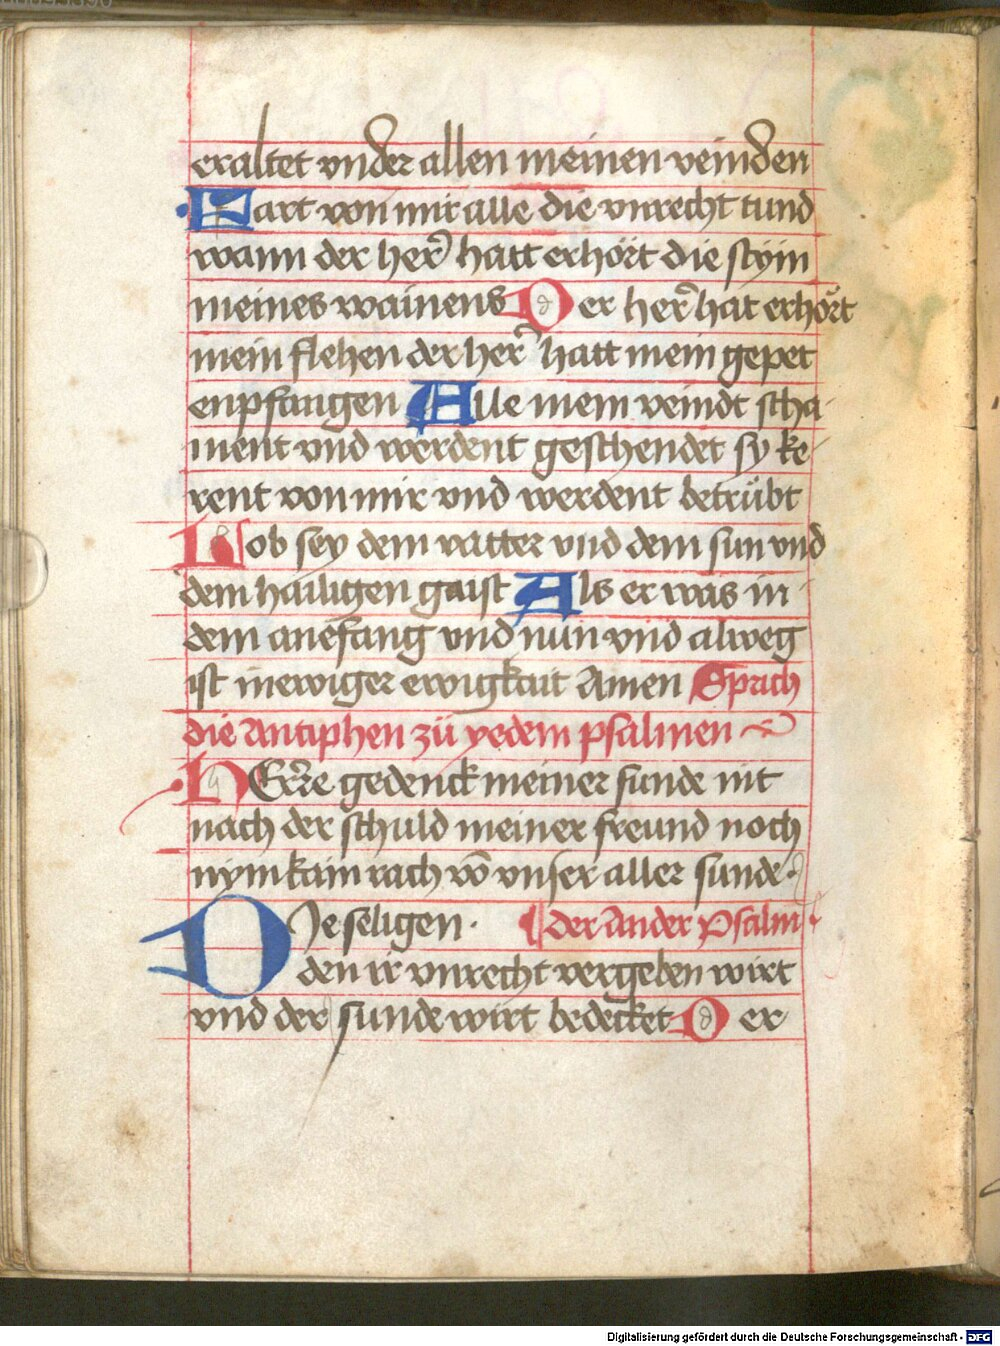 eraltet vnder allen meinen veinden
Fart von mir alle die vnrecht tund
wann der her̃ hatt erhört die stÿm
meines wainens Der her̃ hat erhört
mein flehen der her̃ hatt mein gepet
enpfangen Alle mein veindt scha-
ment vnd werdent geschendet sy ke-
rent von mir vnd werdent betrübt
Lob sey dem vatter vnd dem sun vnd
dem hailigen gaist Als er was in
dem anefang vnd nun vnd alweg
ist in ewiger ewigkait Amen Sprich
die Antiphen zü yedem psalmen
HErre gedenck meiner sunde nit
nach der schuld meiner freund noch
nym kain rach võ vnser aller sunde
DIe seligen · ¶ der Ander Psalm
den ir vnrecht vergeben wirt
vnd der sunde wirt bedecket Der
Digitalisierung gefördert durch die Deutsche Forschungsgemeinschaft - DFG